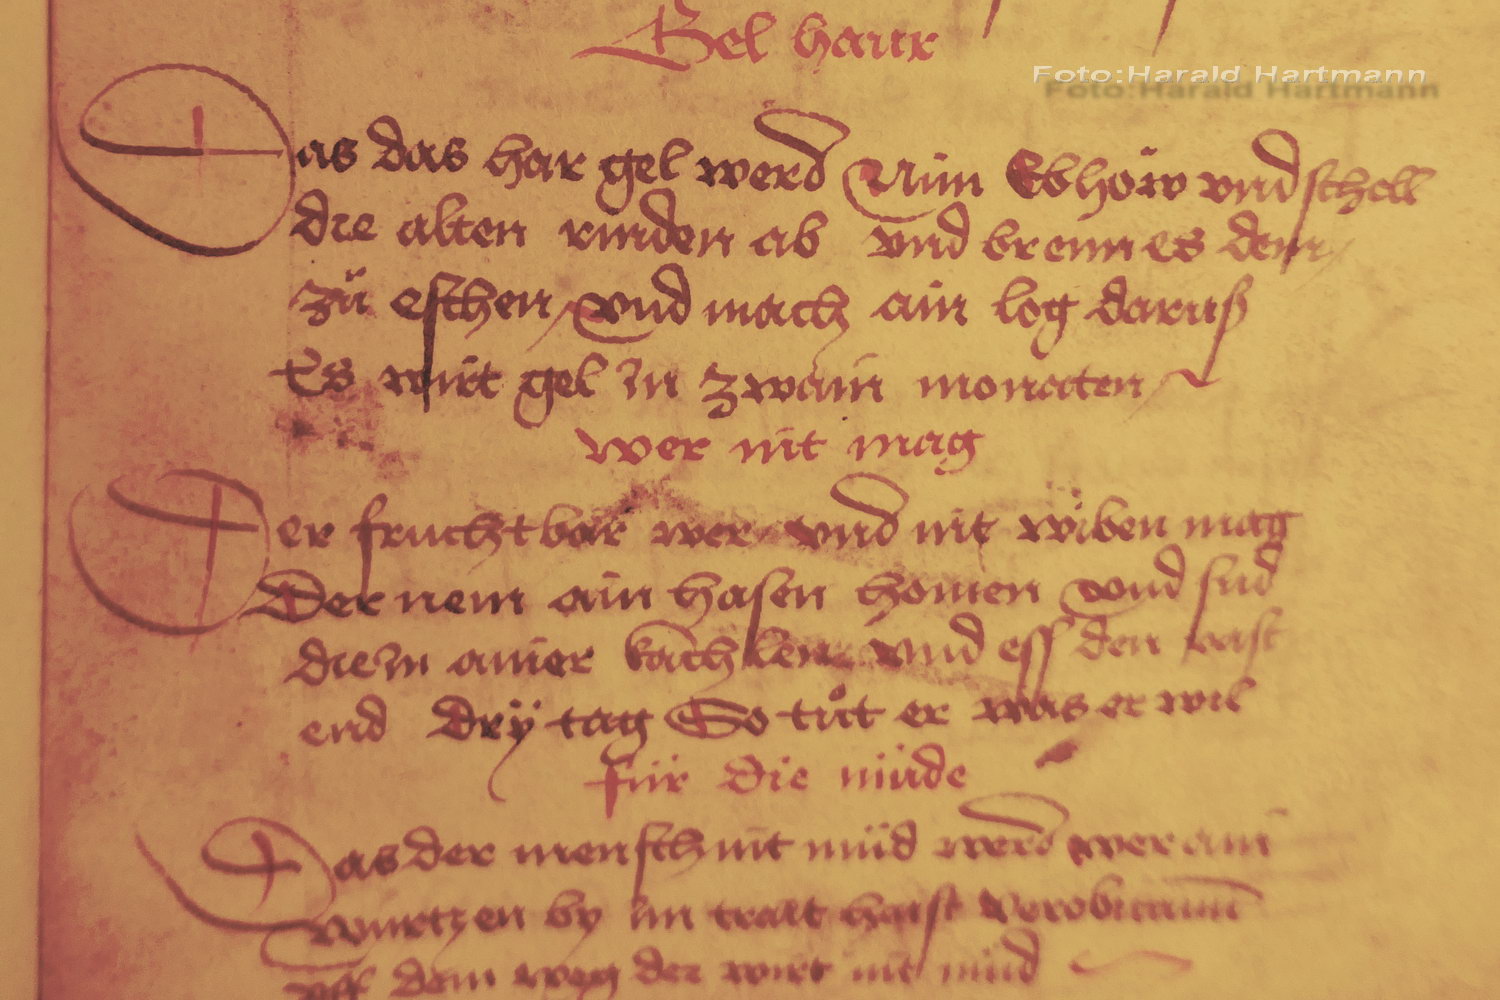 Gel haur
Foto:Harald Hartmann
Das das har gel werd Nim Ebhöw vnd schell
die alten rinden ab vnd brenn es denn
zü eschen vnd mach ain log daruß
Es wirt gel In zwain monaten
wer nit mag
Der fruchtbar wer vnd nit wiben mag
Der nem ain hasen honien vnd sud
die In ainer kachlen vnd ess den vast
end Drÿ tag So tůt er was er wil
für die müde
Das der mensch nit müd werd wer ain
wurtzen by Im trait haist verobitanum
vff dem weg der wirt nit müd